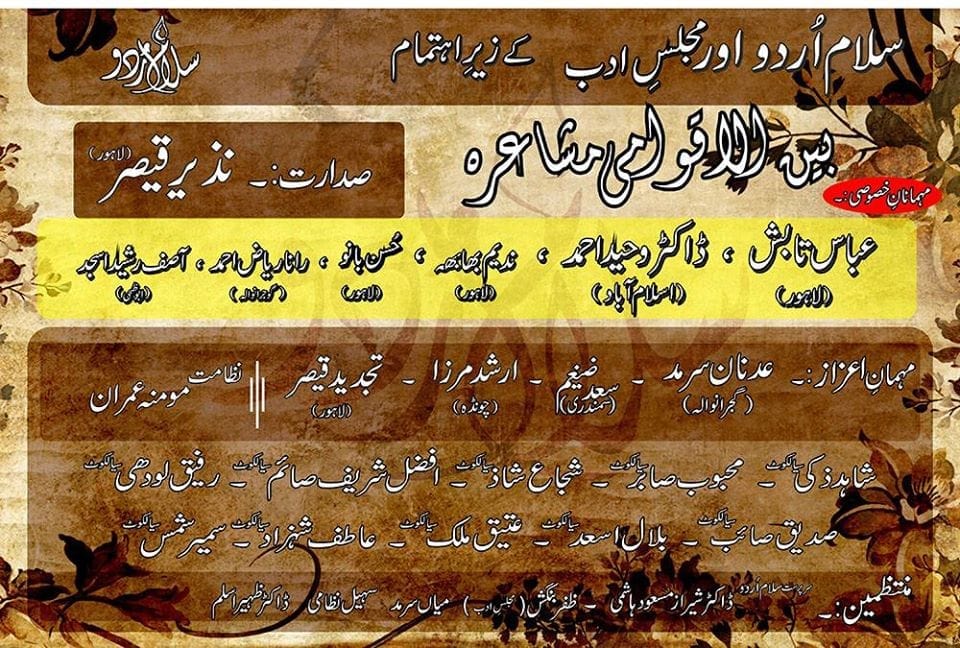 سلام اُردو اور مجلسِ ادب کے زیرِ اہتمام
سلام اردو
بین الاقوامی مشاعرہ
صدارت:۔ نذیر قیصر (لاہور)
مہمانانِ خصوصی:۔
عباس تابش ، ڈاکٹر وحید احمد ، ندیم بھابھہ ، حُسن بانو ، رانا ریاض احمد ، آصف رشید اسجد
(لاہور) (اسلام آباد) (لاہور) (لاہور) (گوجرانوالہ) (ابوظہبی)
مہمانِ اعزاز:۔ عدنان سرمد ۔ سعد ضیغم ۔ ارشد مرزا ۔ تجدید قیصر
(گجرانوالہ) (سمندری) (چونڈہ) (لاہور)
نظامت
مومنہ عمران
شاہد ذکی سیالکوٹ ۔ محبوب صابر سیالکوٹ ۔ شجاع شاذ سیالکوٹ ۔ افضل شریف صائم سیالکوٹ ۔ رفیق لودھی سیالکوٹ
صدیق صائب سیالکوٹ ۔ بلال اسعد سیالکوٹ ۔ عتیق ملک سیالکوٹ ۔ عاطف شہزاد سیالکوٹ ۔ سمیر شمس سیالکوٹ
منتظمین:۔ سرپرست سلام اُردو ڈاکٹر شیراز مسعود ہاشمی ۔ ظفر بنگش (مجلس ادب) میاں سرمد سہیل نظامی ڈاکٹر ظہیر اسلم